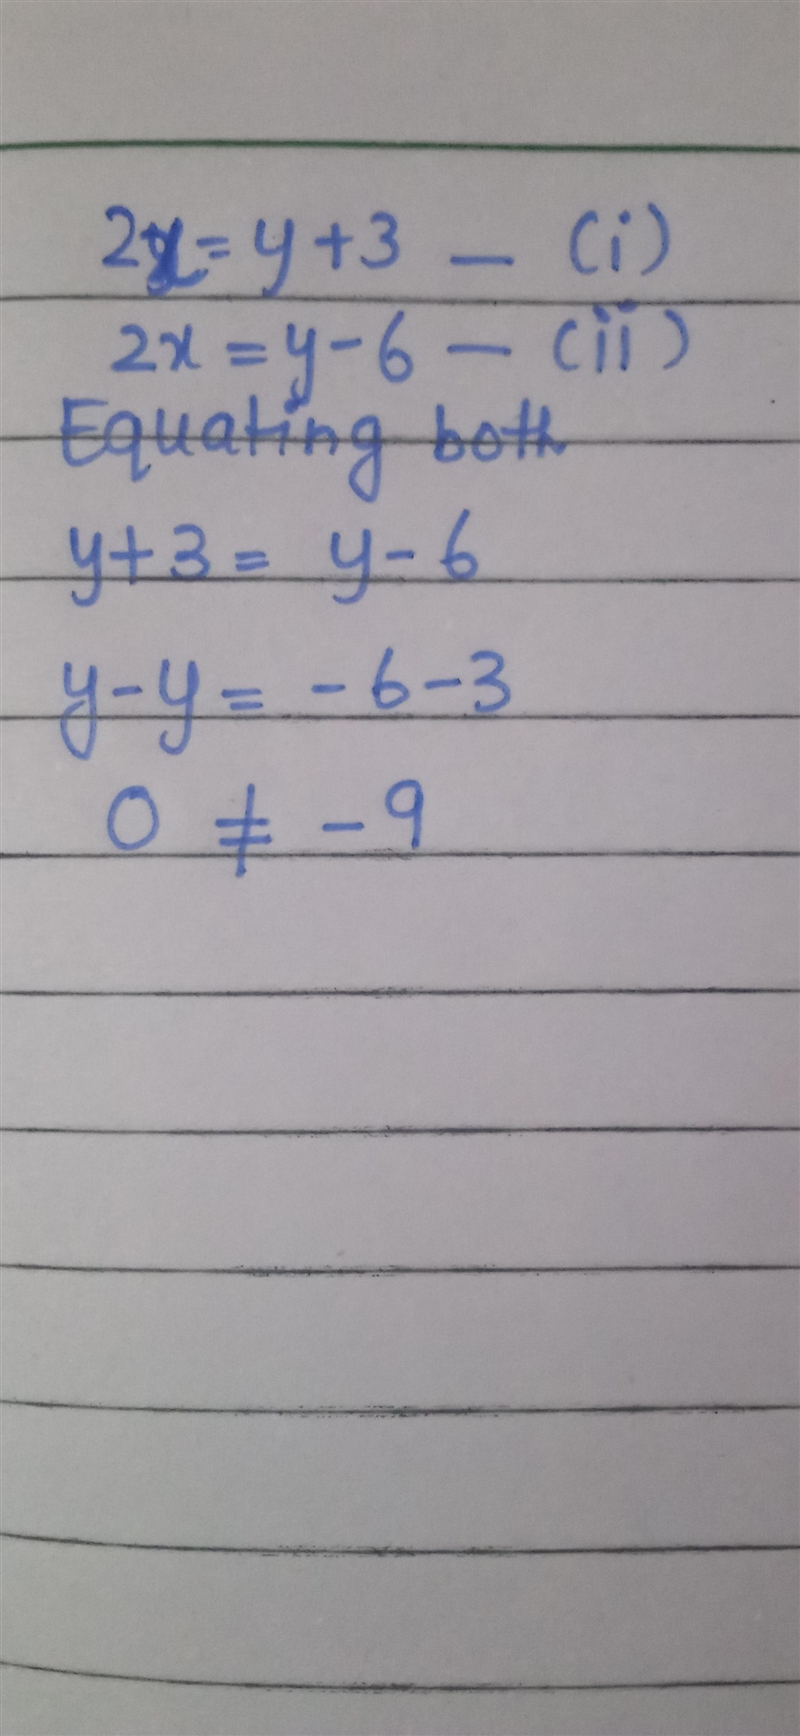 2x = y + 3 — (i)
2x = y - 6 — (ii)
Equating both
y + 3 = y - 6
y - y = - 6 - 3
0 ≠ - 9